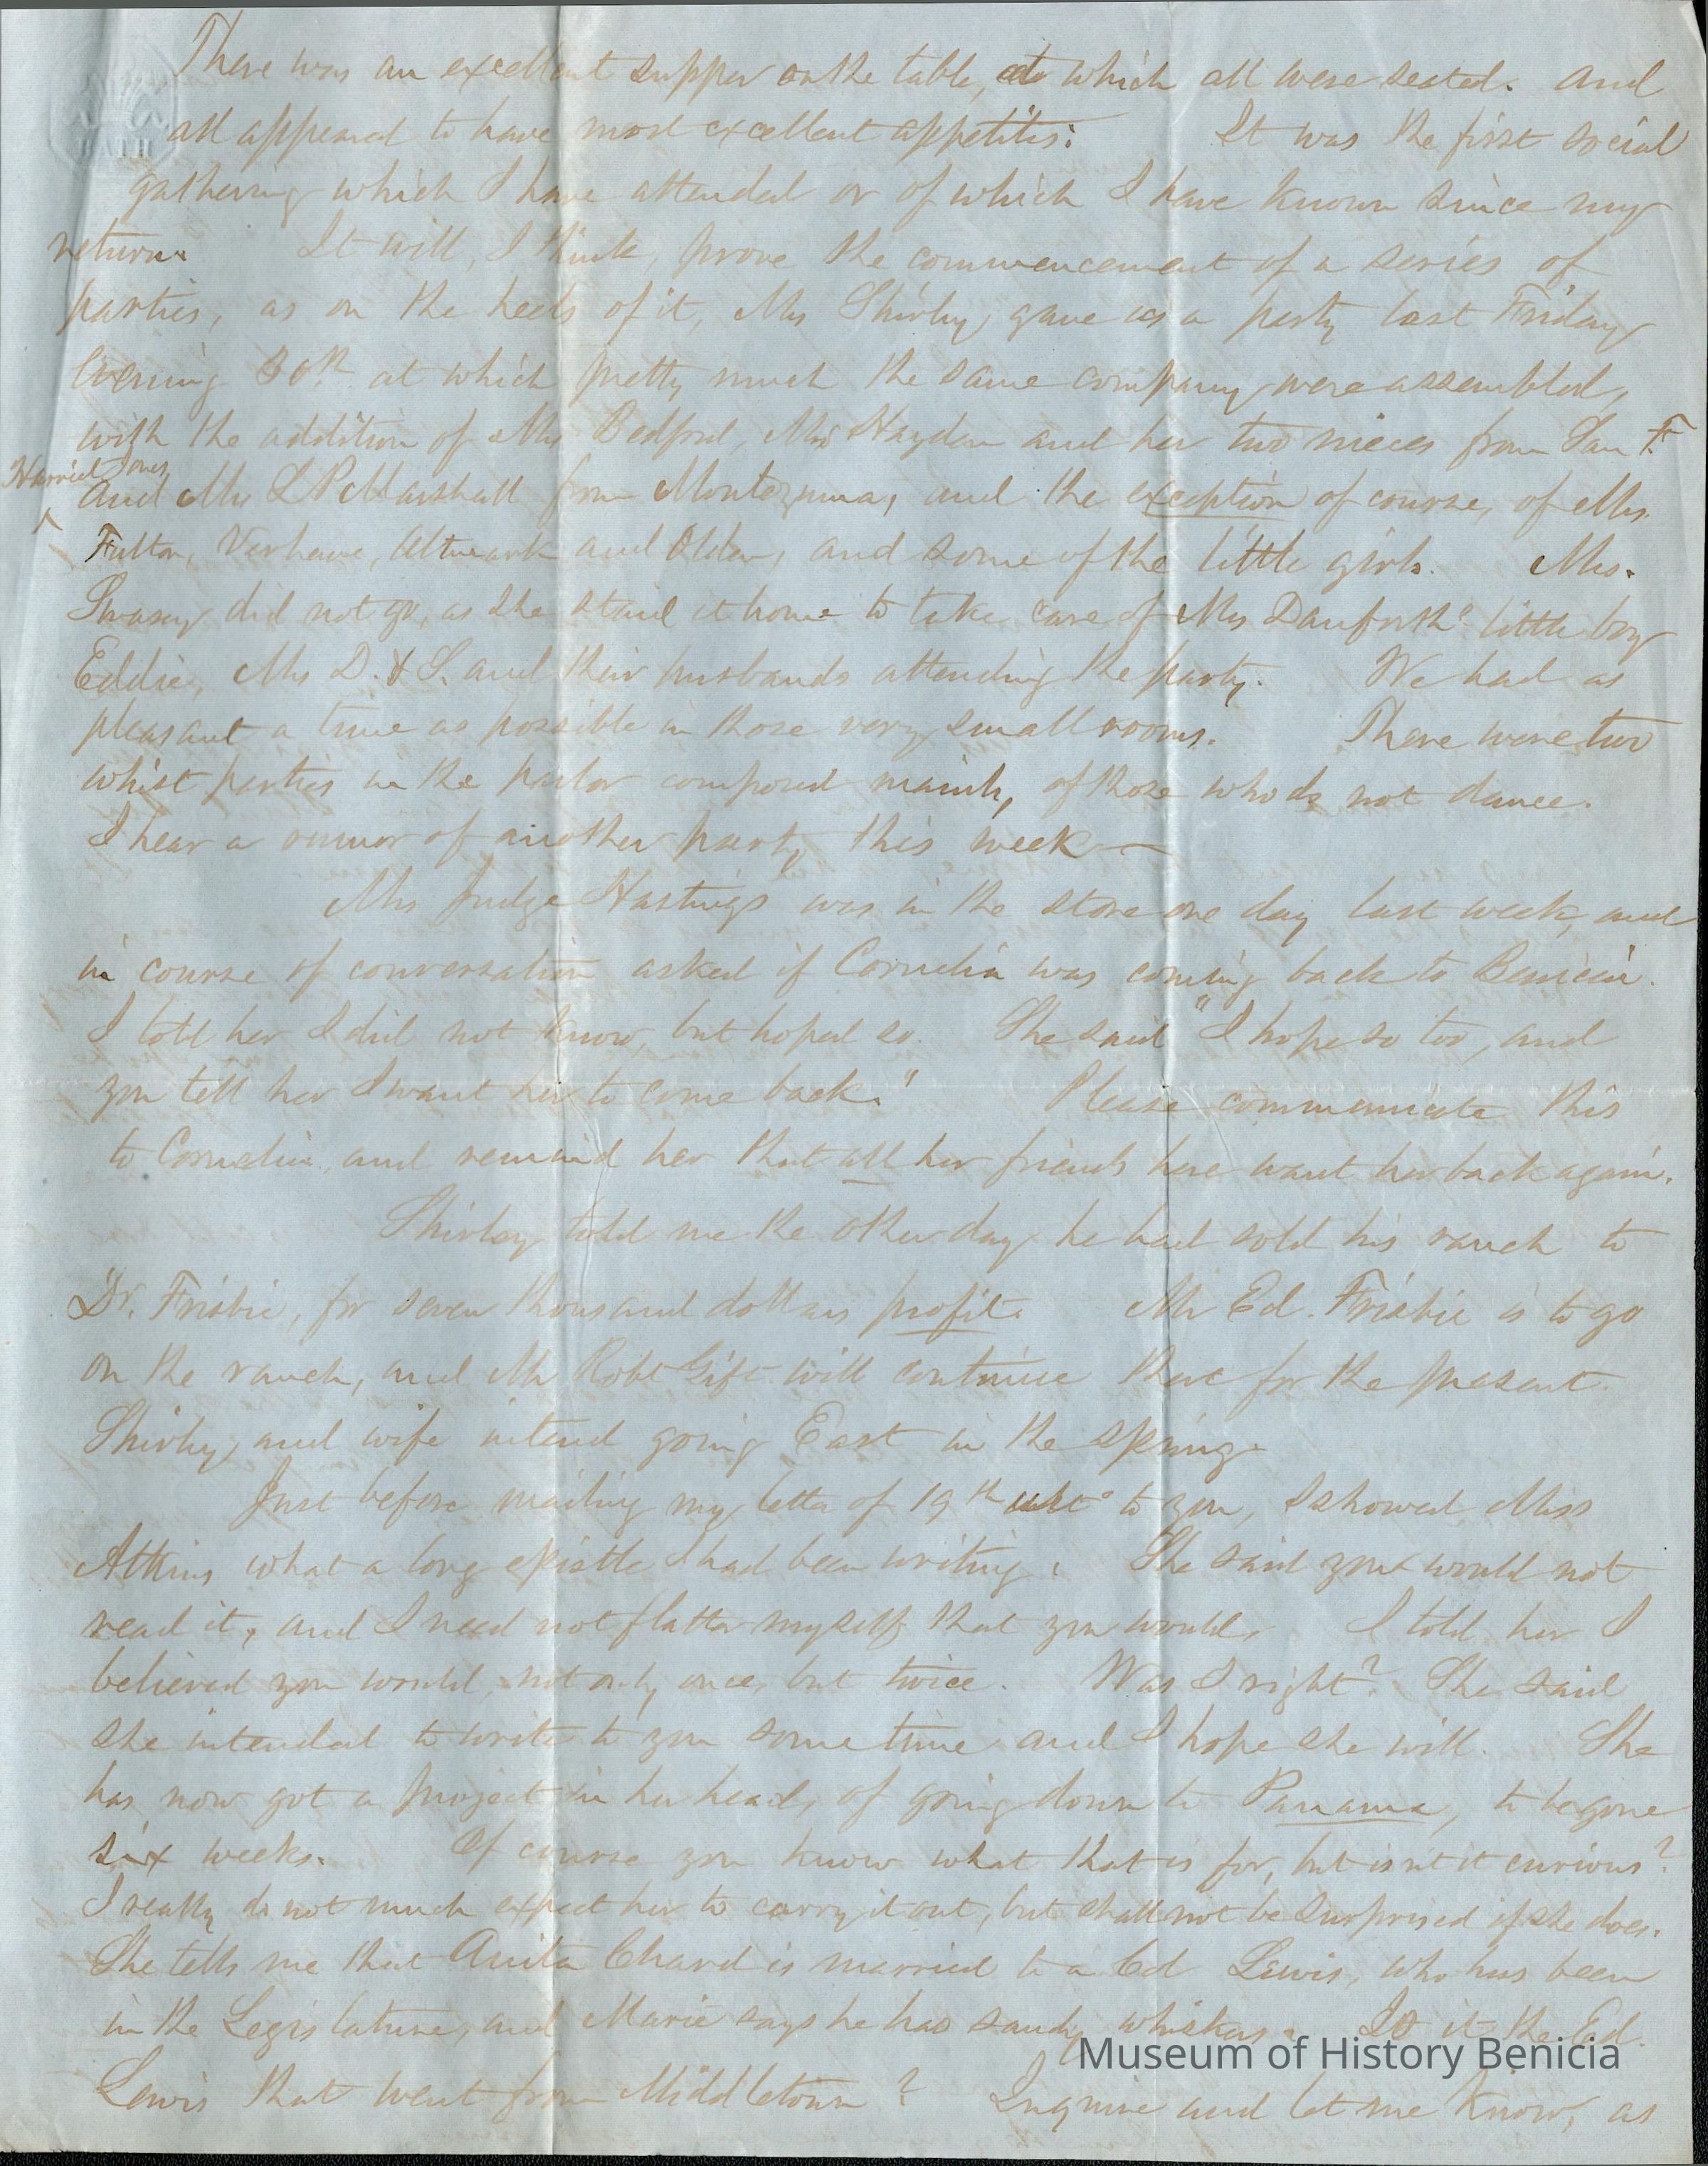 There was an excellent supper on the table, at which all were seated. and
all appeared to have most excellent appetites. It was the first social
gathering which I have attended or of which I have known since my
return. It will, I think, prove the commencement of a series of
parties, as on the heels of it, Mrs Shirley gave us a party last Friday
Evening 30th at which pretty much the same company were assembled,
with the addition of Mrs Bedford, Mrs Hayden and her two nieces from San F.
Harriet Jones,
and Mrs L P Marshall from Montezuma, and the exception of course, of Mrs.
Fulton, Verhave, and Olden, and some of the little girls. Mrs.
Swasey did not go, as she staid at home to take care of Mrs Danforth's little boy
Eddie, Mrs D. & S. and their husbands attending the party. We had as
pleasant a time as possible in those very small rooms. There were two
whist parties in the parlor composed mainly of those who do not dance.
I hear a rumor of another party this week —
Mrs Judge Hastings was in the store one day last week, and
in course of conversation asked if Cornelia was coming back to Benicia.
I told her I did not know, but hoped so. She said "I hope so too, and
you tell her I want her to come back." Please communicate this
to Cornelia, and remind her that all her friends here want her back again.
Shirley told me the other day he had sold his ranch to
Dr. Frisbie, for seven thousand dollars profit. Mr Ed. Frisbie is to go
on the ranch, and Mr Robt Gift will continue there for the present.
Shirley and wife intend going East in the spring.
Just before mailing my letter of 19th ulto to you, I showed Miss
Atkins what a long epistle I had been writing. She said you would not
read it, and I need not flatter myself that you would. I told her I
believed you would, not only once, but twice. Was I right? She said
she intended to write to you some time and I hope she will. She
has now got a project in her head, of going down to Panama, to be gone
six weeks. Of course you know what that is for, but isn't it curious?
I really do not much expect her to carry it out, but shall not be surprised if she does.
She tells me that Anita Chard is married to a Ed Lewis, who has been
in the Legislature, and Marie says he has sandy whiskers. Is it the Ed.
Museum of History Benicia
Lewis that went from Middletown? Inquire and let me know, as